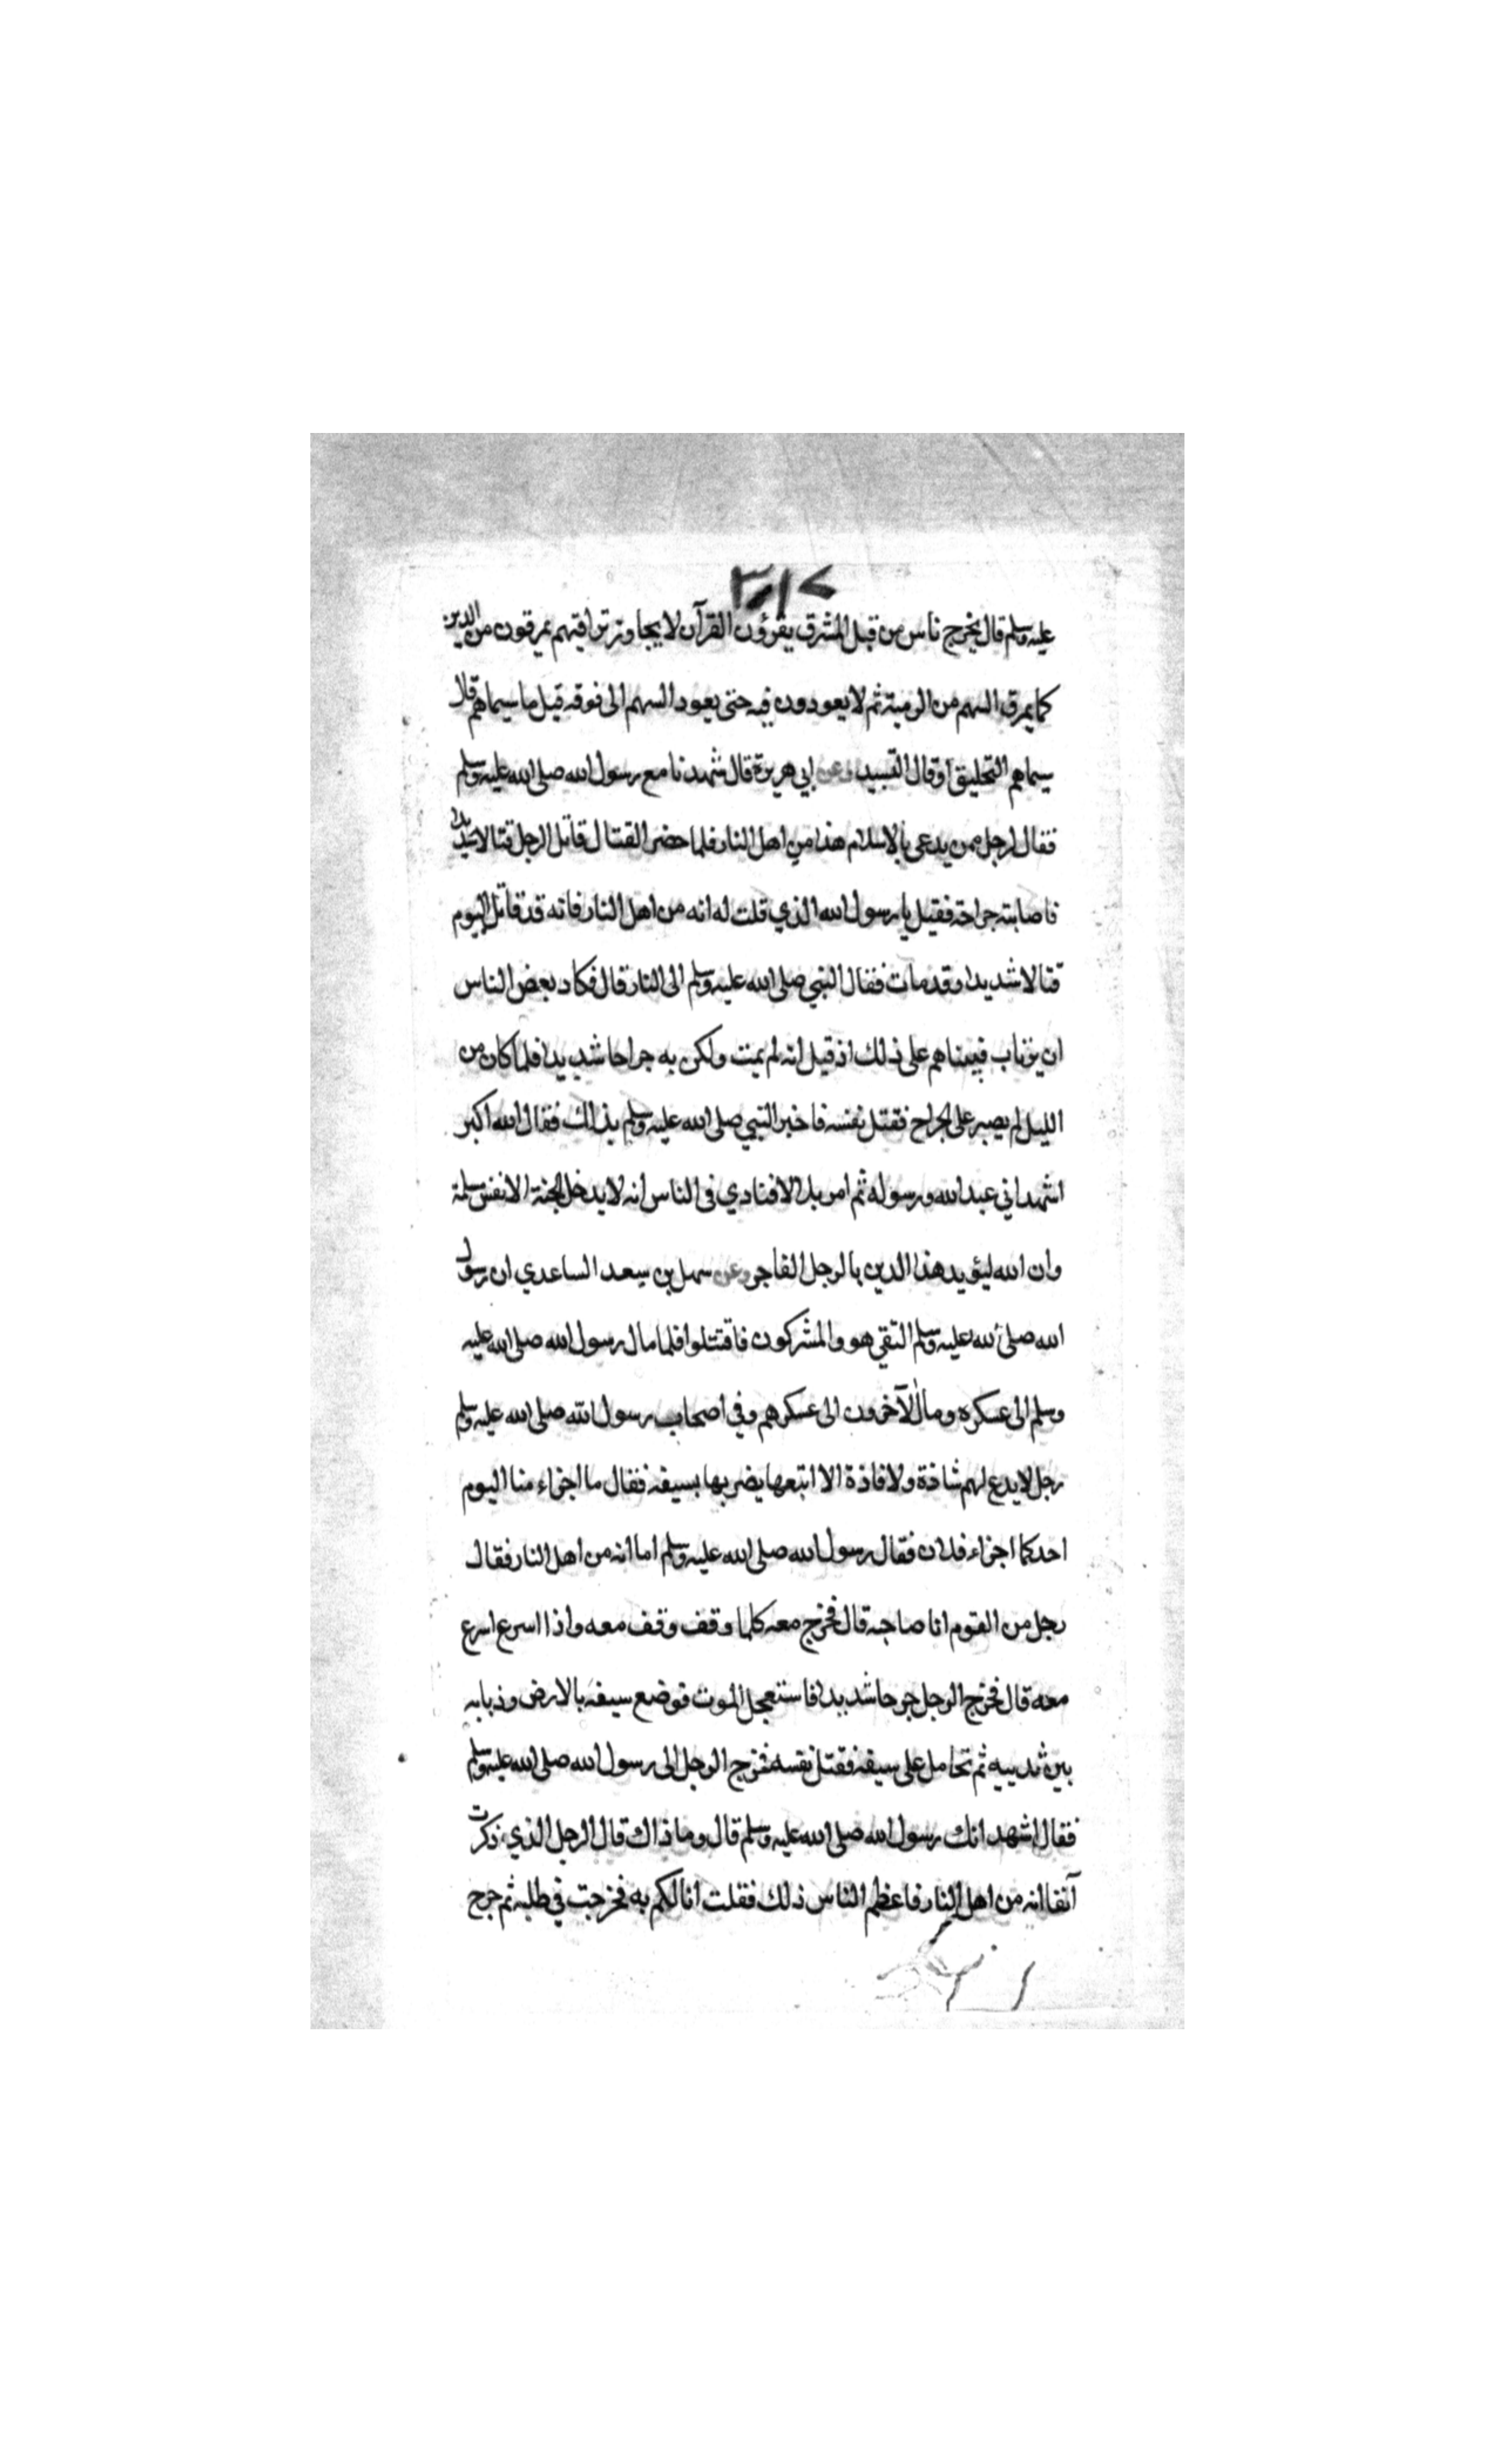 عليه وسلم قال يخرج ناس من قبل المشرق يقرؤن القرآن لا يجاوز تراقيهم يمرقون من الدين
كما يمرق السهم من الرمية ثم لا يعودون فيه حتى يعود السهم الى فوقه قيل ما سيماهم قال
سيماهم التحليق او قال التسبيد وعن ابي هريرة قال شهدنا مع رسول الله صلى الله عليه وسلم
فقال لرجل ممن يدعى بالاسلام هذا من اهل النار فلما حضر القتال قاتل الرجل قتالا شديدا
فاصابته جراحة فقيل يا رسول الله الذي قلت له انه من اهل النار فانه قد قاتل اليوم
قتالا شديدا وقد مات فقال النبي صلى الله عليه وسلم الى النار قال فكاد بعض الناس
ان يرتاب فبيناهم على ذلك اذ قيل انه لم يمت ولكن به جراحا شديدا فلما كان من
الليل لم يصبر على الجراح فقتل نفسه فاخبر النبي صلى الله عليه وسلم بذلك فقال الله اكبر
اشهد اني عبد الله ورسوله ثم امر بلالا فنادي في الناس انه لا يدخل الجنة الا نفس مسلمة
وان الله ليؤيد هذا الدين بالرجل الفاجر وعن سهل بن سعد الساعدي ان رسول
الله صلى الله عليه وسلم التقي هو والمشركون فاقتتلوا فلما مال رسول الله صلى الله عليه
وسلم الى عسكره ومال الآخرون الى عسكرهم وفي اصحاب رسول الله صلى الله عليه وسلم
رجل لا يدع لهم شاذة ولا فاذة الا اتبعها يضربها بسيفه فقال ما اجزاء منا اليوم
احد كما اجزاء فلان فقال رسول الله صلى الله عليه وسلم اما انه من اهل النار فقال
رجل من القوم انا صاحبه قال فخرج معه كلما وقف وقف معه واذا اسرع اسرع
معه قال فخرج الرجل جرحا شديدا فاستعجل الموت فوضع سيفه بالارض وذبابه
بين ثدييه ثم تحامل على سيفه فقتل نفسه فخرج الرجل الى رسول الله صلى الله عليه وسلم
فقال اشهد انك رسول الله صلى الله عليه وسلم قال وما ذاك قال الرجل الذي ذكرت
آنفا انه من اهل النار فاعظم الناس ذلك فقلت انا لكم به فخرجت في طلبه ثم جرح